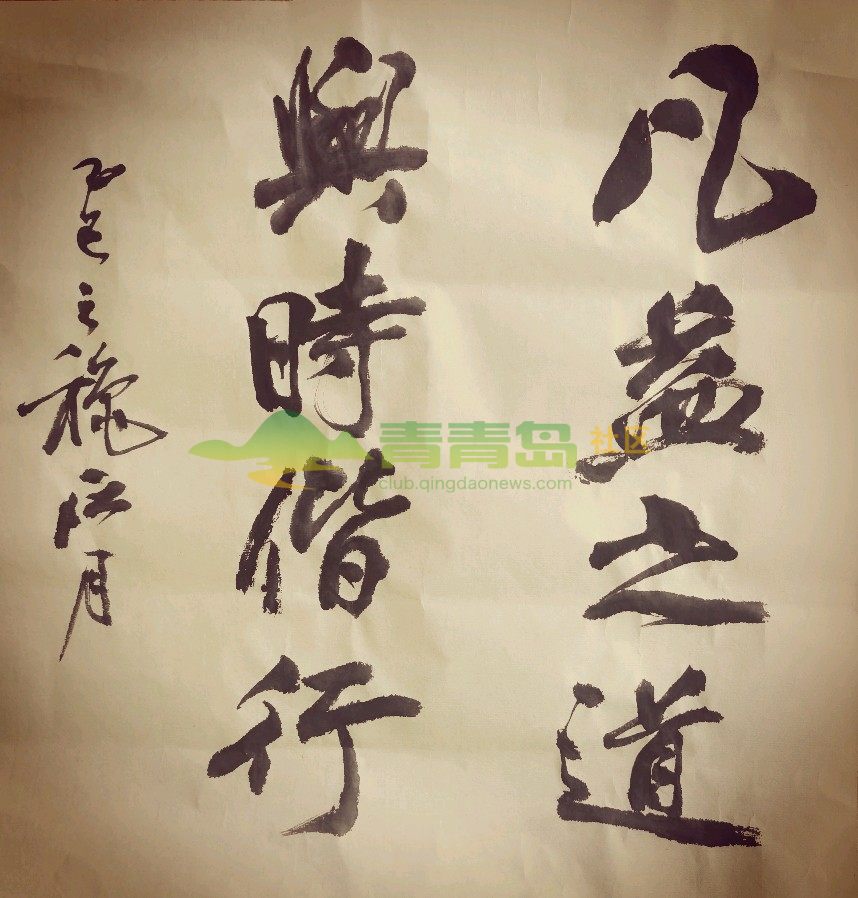 凡益之道
與時偕行
之 月
青青岛 社区
club.qingdaonews.com